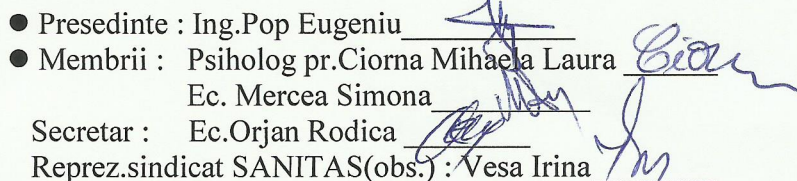 ● Presedinte : Ing.Pop Eugeniu
● Membrii : Psiholog pr.Ciorna Mihaela Laura
Ec. Mercea Simona
Secretar : Ec.Orjan Rodica
Reprez.sindicat SANITAS(obs.) : Vesa Irina